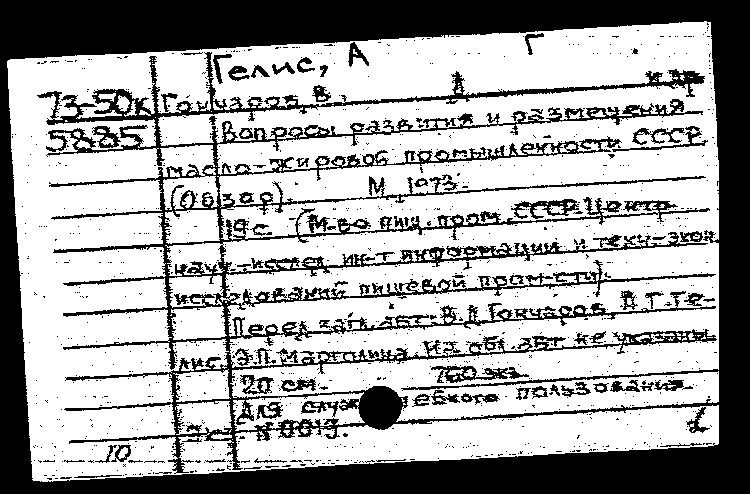 Гелис, А Г
73-50к Гончаров, В. А. и др.
5885 Вопросы развития и размещения
масло-жировой промышленности СССР
(Обзор). М., 1973.
19 с. (М-во пищ. пром. СССР. Центр.
науч.-исслед. ин-т информации и техн.-экон.
исследований пищевой пром-сти).
Перед загл. авт.: В.А. Гончаров, А.Г. Ге-
лис, Э.П. Марголина. На обл. авт. не указаны.
20 см. 760 экз.
Для служебного пользования
Экз. №0019.
10